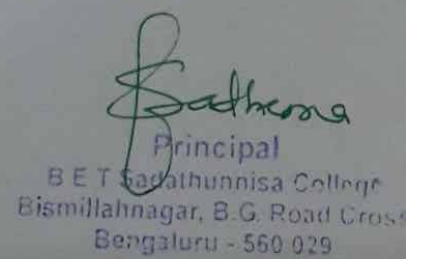 Principal
B E T Sadathunnisa College
Bismillahnagar, B.G. Road Cross
Bengaluru - 560 029